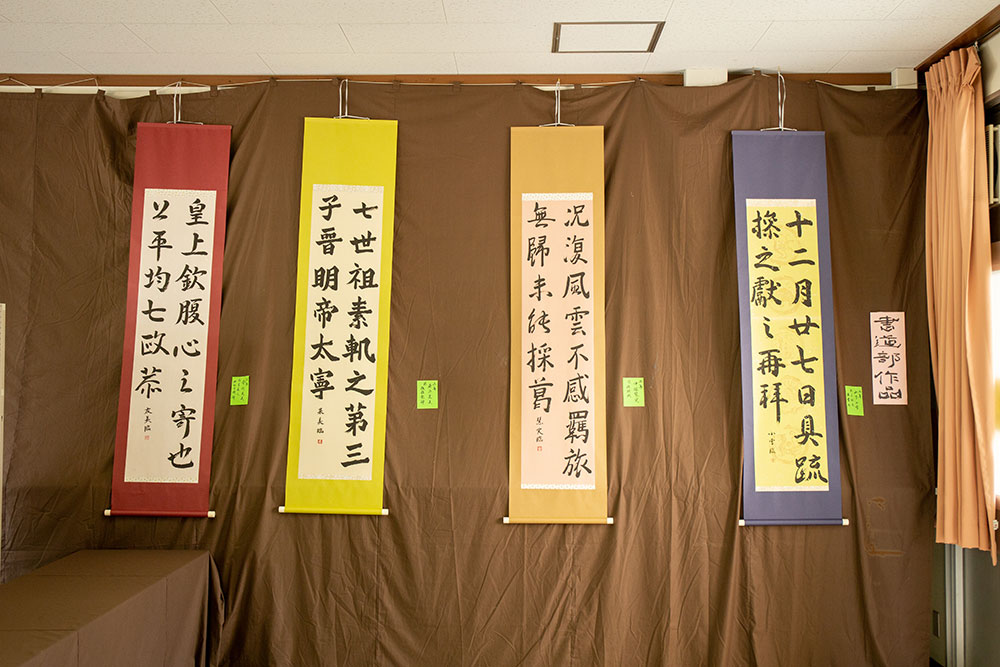 書道部作品
十二月廿七日具疏
操之獻之再拜
況復風雲不感羈旅
無歸未能採葛
七世祖素軌之第三
子晉明帝太寧
皇上欽腹心之寄也
公平均七政恭